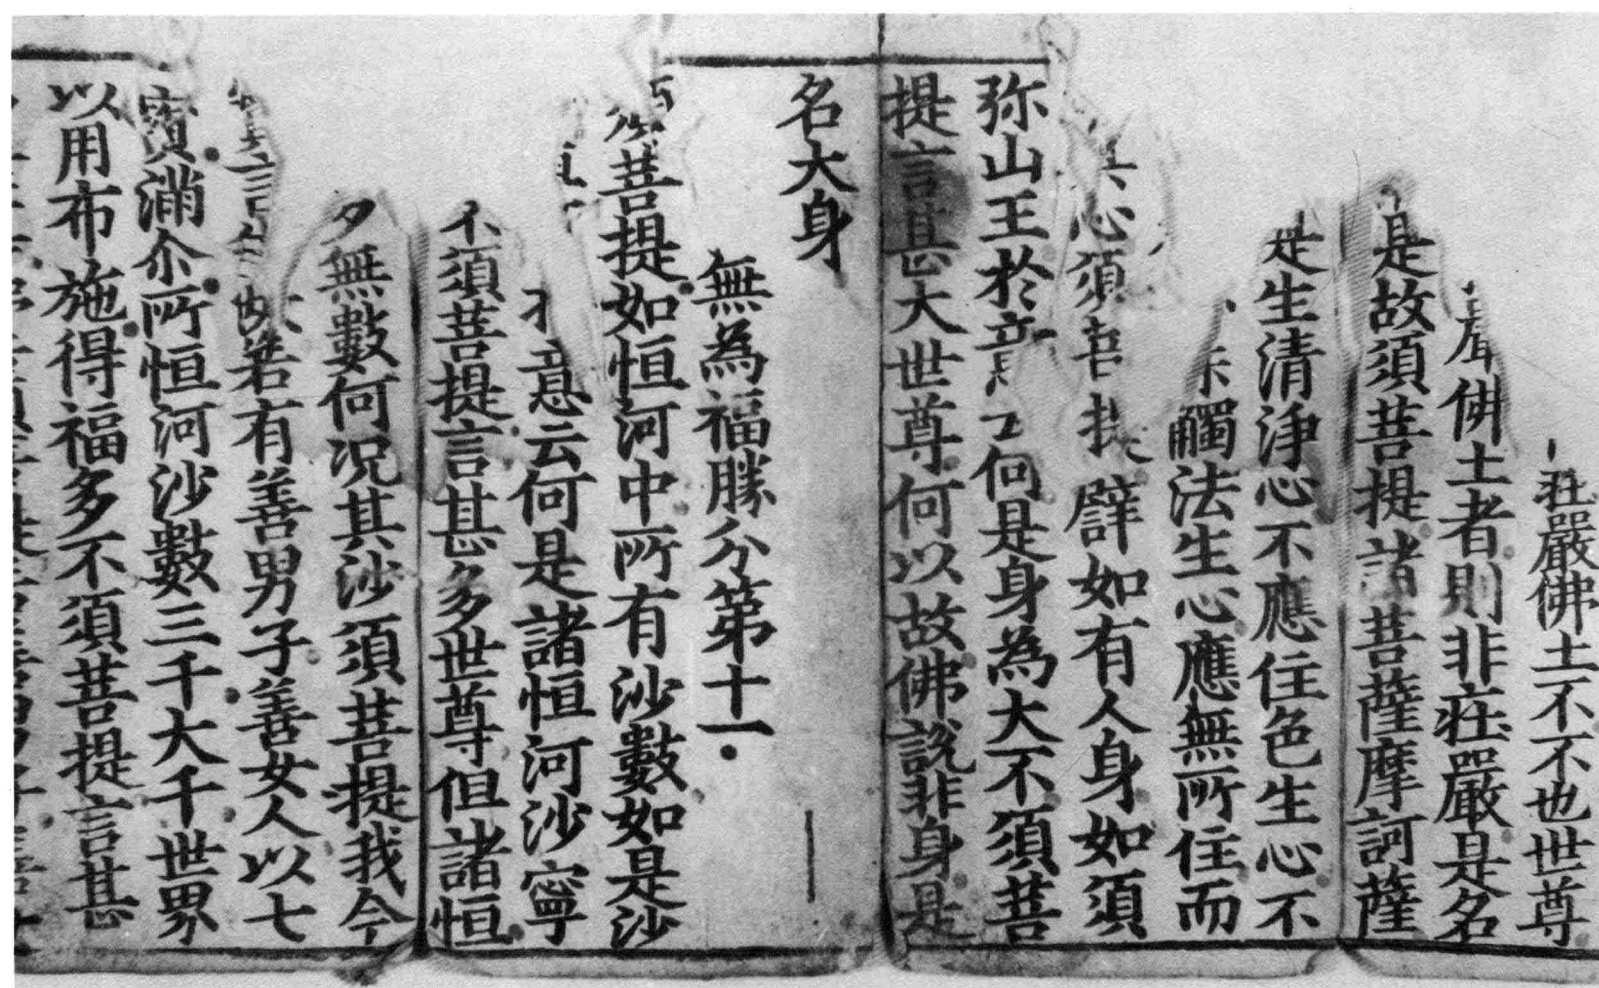 莊嚴佛土不不也世尊
佛土者則非莊嚴是名
是故須菩提諸菩薩摩訶薩
是生清淨心不應住色生心不
觸法生心應無所住而
其心須菩提譬如有人身如須
弥山王於意云何是身為大不須菩
提言甚大世尊何以故佛說非身是
名大身
無為福勝分第十一
須菩提如恒河中所有沙數如是沙
意云何是諸恒河沙寧
不須菩提言甚多世尊但諸恒
多無數何況其沙須菩提我今
若有善男子善女人以七
寶滿尒所恒河沙數三千大千世界
以用布施得福多不須菩提言甚